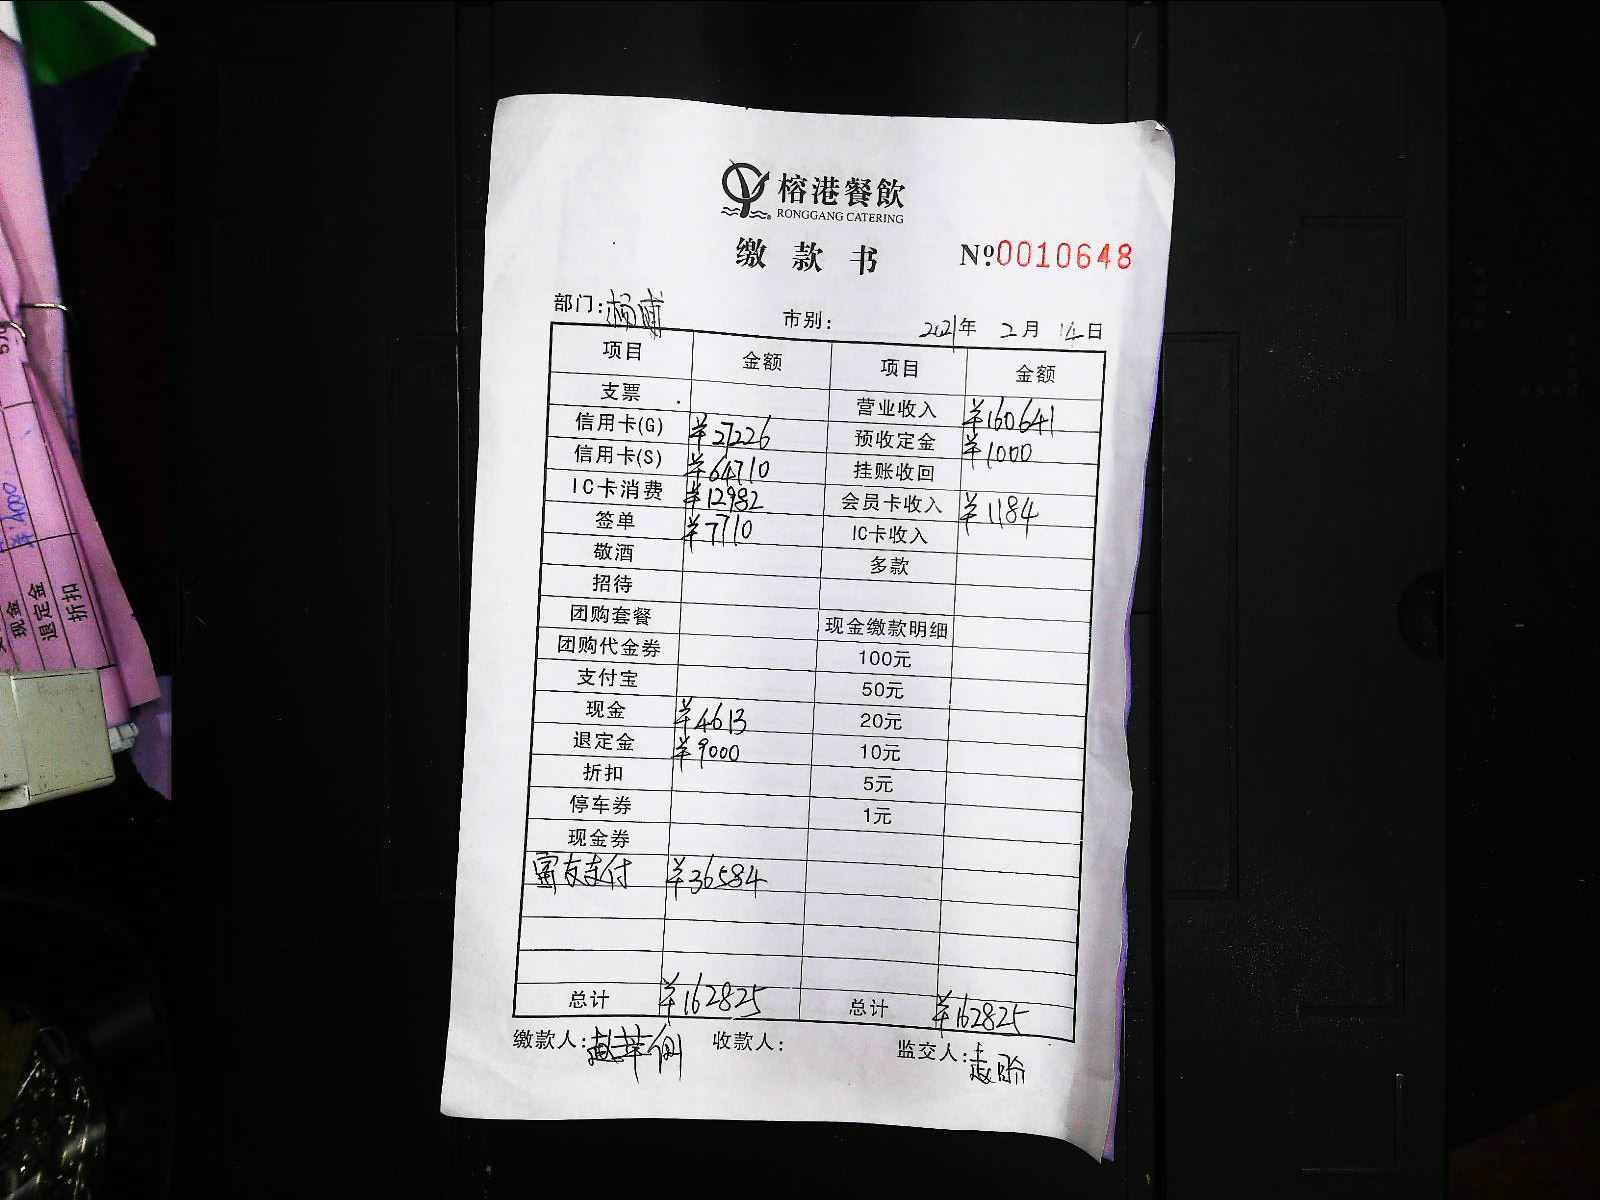 榕港餐飲
RONGGANG CATERING
缴款书 №0010648
部门:杨浦 市别: 2021年 2月 14日
项目 金额 项目 金额
支票 营业收入 ¥160641
信用卡(G) ¥27226 预收定金 ¥1000
信用卡(S) ¥64710 挂账收回
IC卡消费 ¥12982 会员卡收入 ¥1184
签单 ¥7710 IC卡收入
敬酒 多款
招待
团购套餐 现金缴款明细
团购代金券 100元
支付宝 50元
现金 ¥4613 20元
退定金 ¥9000 10元
折扣 5元
停车券 1元
现金券
支付 ¥36584
总计 ¥162825 总计 ¥162825
缴款人: 收款人: 监交人:
¥4000
现金
退定金
折扣